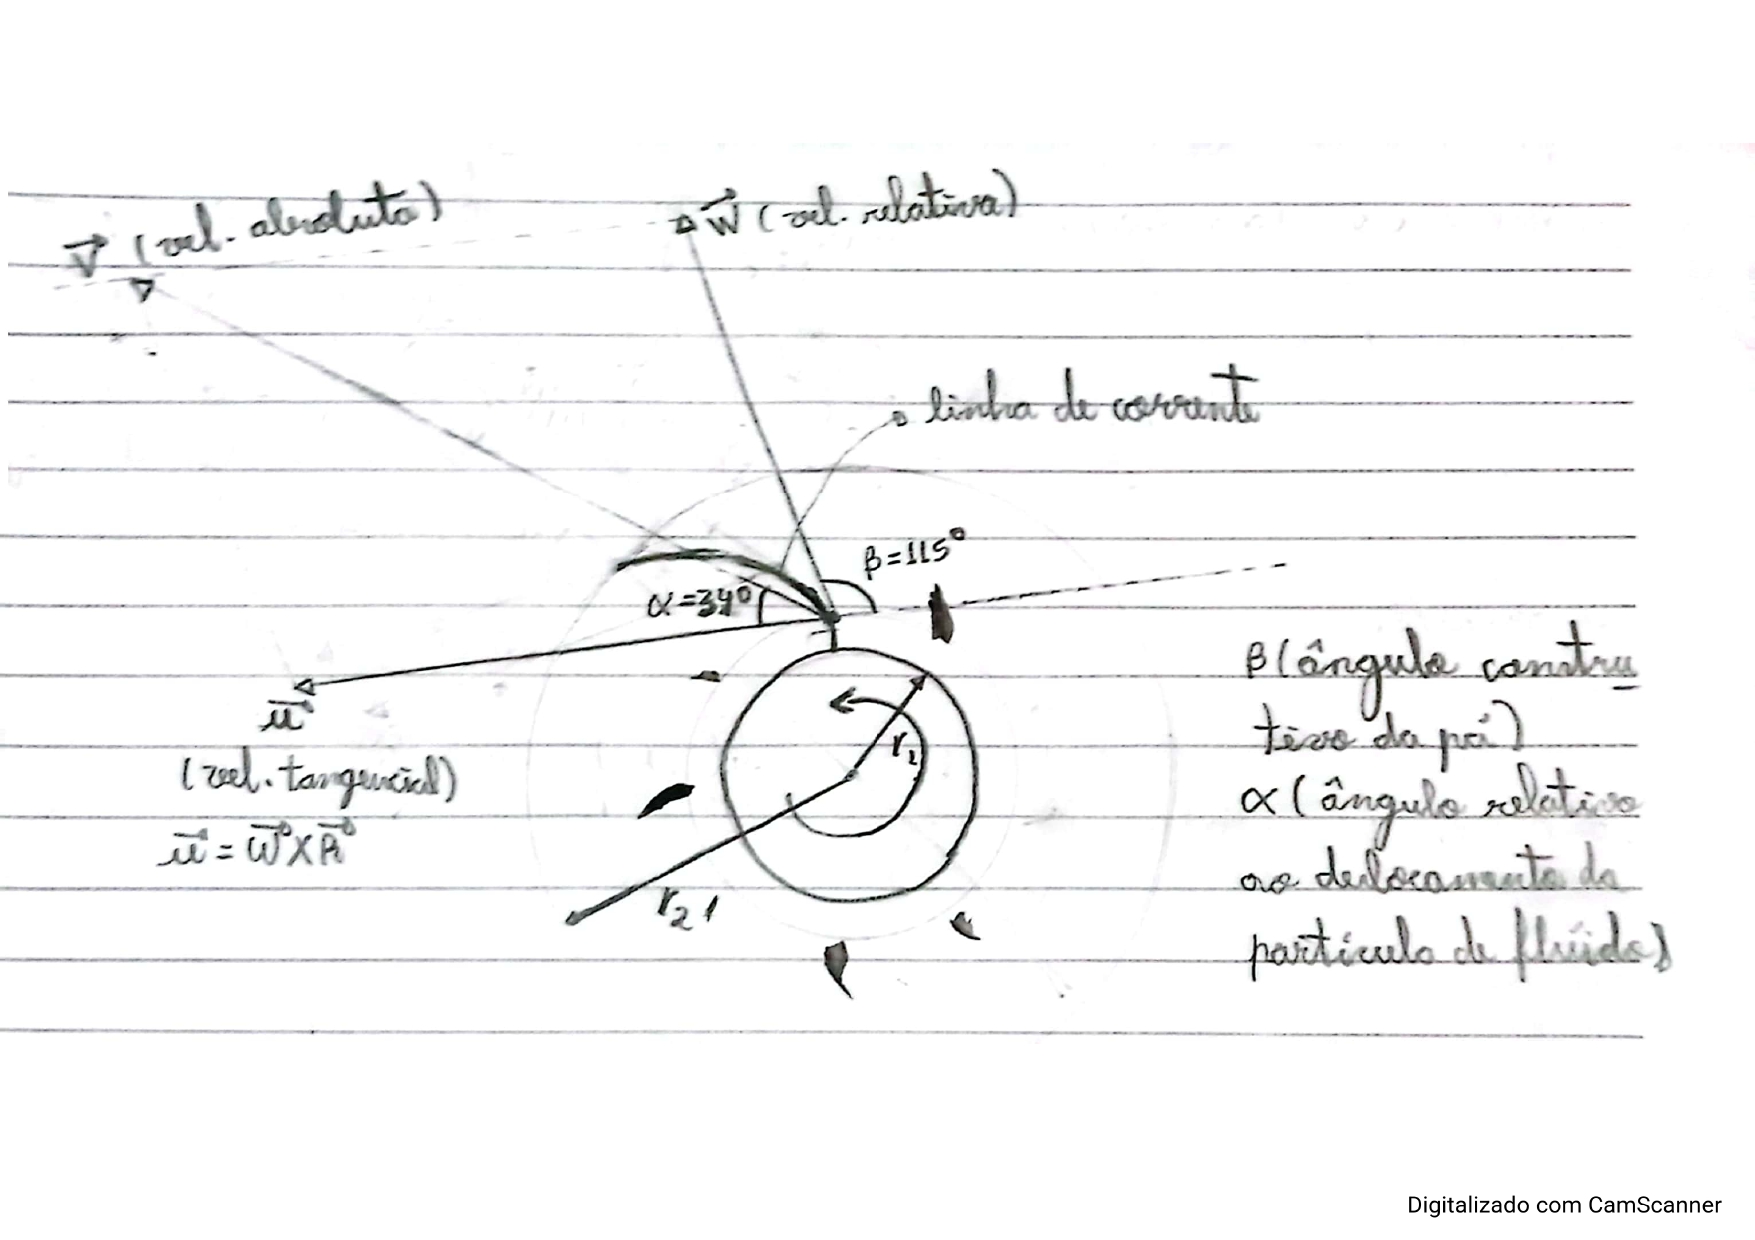 V⃗ (vel. absoluta)
W⃗ (vel. relativa)
linha de corrente
β=115°
α=34°
u⃗
(vel. tangencial)
u⃗ = W⃗ X R⃗
r₁
r₂
β (ângulo constru
tivo da pá)
α (ângulo relativo
ao deslocamento da
partícula de fluído)
Digitalizado com CamScanner